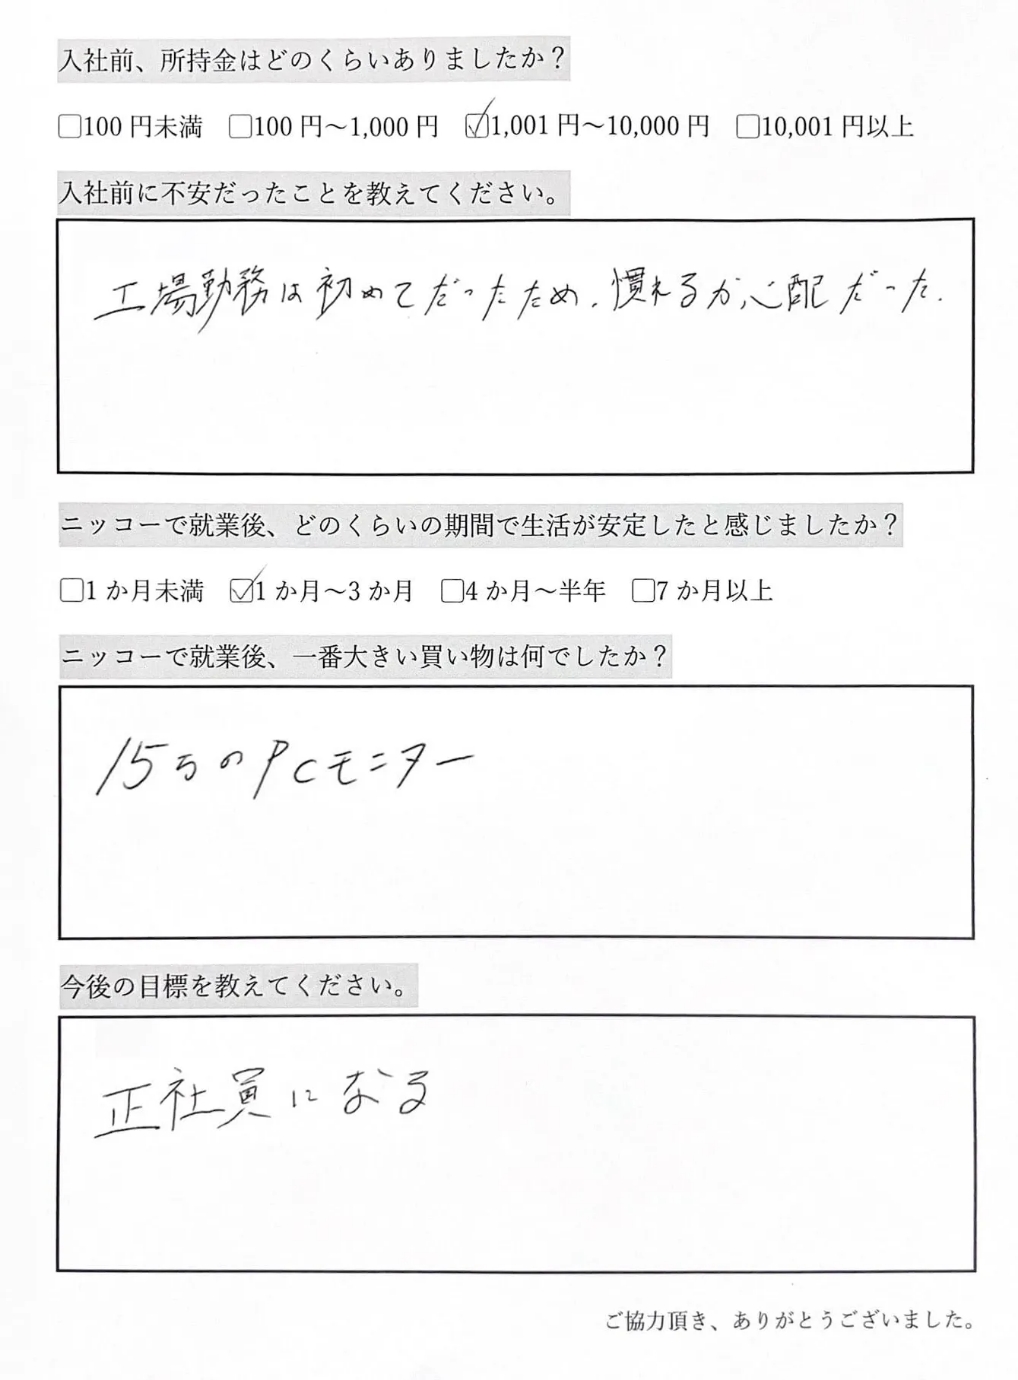 入社前、所持金はどのくらいありましたか？
☐100 円未満 ☐100 円～1,000 円 ☑1,001 円～10,000 円 ☐10,001 円以上
入社前に不安だったことを教えてください。
工場勤務は初めてだったため、慣れるか心配だった.
ニッコーで就業後、どのくらいの期間で生活が安定したと感じましたか？
☐1 か月未満 ☑1 か月～3 か月 ☐4 か月～半年 ☐7 か月以上
ニッコーで就業後、一番大きい買い物は何でしたか？
15万のPCモニター
今後の目標を教えてください。
正社員になる
ご協力頂き、ありがとうございました。